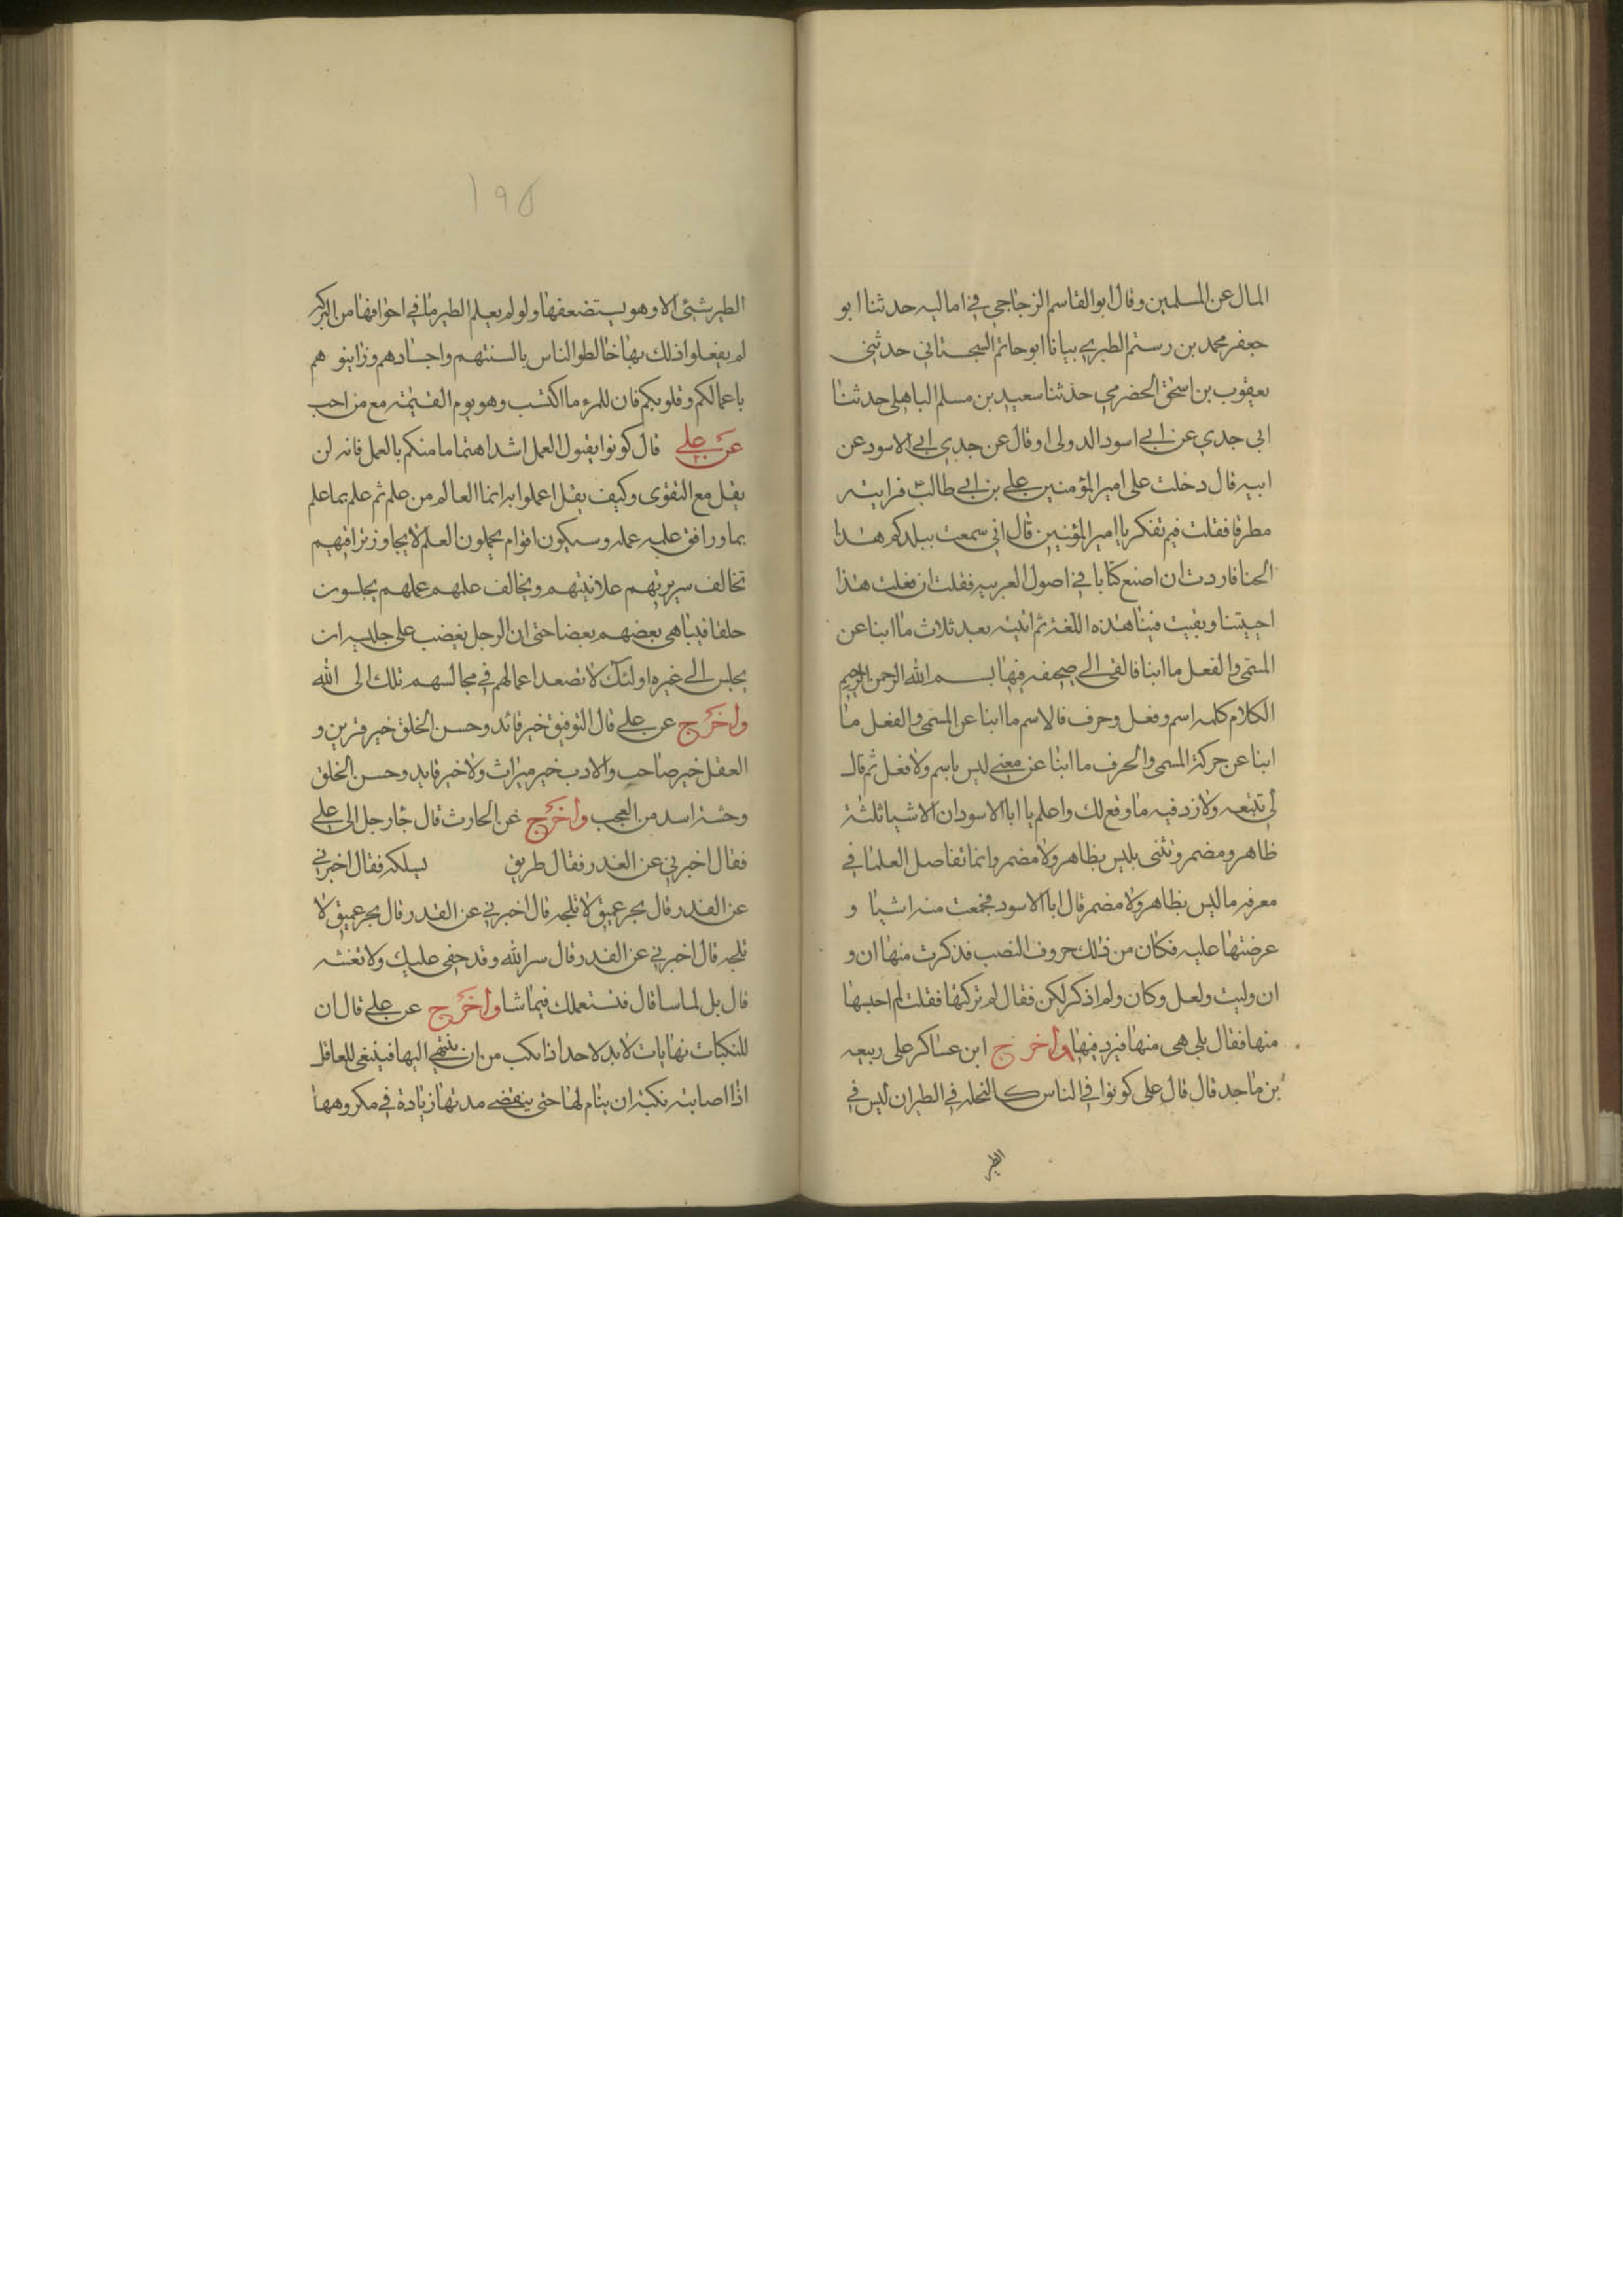 المال عن المسلمين وقال ابو القاسم الزجاجي في اماليه حدثنا ابو
جعفر محمد بن رستم الطبري بيانا ابو حاتم السجستاني حدثني
يعقوب بن اسحق الحضرمي حدثنا سعيد بن مسلم الباهلي حدثنا
ابي جدي عن ابي اسود الدولى او قال عن جدي ابي الاسود عن
ابيه قال دخلت على امير المؤمنين علي بن ابي طالب فرايته
مطرقا فقلت فيم تفكر يا امير المؤمنين قال اني سمعت ببلدكم هذا
الحنا فاردت ان اصنع كتابا في اصول العربيه فقلت ان فعلت هذا
احييتنا وبقيت فينا هذه اللغة ثم اتيته بعد ثلاث ما ابنا عن
المسمى والفعل ما ابنا فالقى الي صحيفه فيها بسم الله الرحمن الرحيم
الكلام كلمه اسم وفعل وحرف فالاسم ما ابنا عن المسمى والفعل ما
ابنا عن حركة المسمى والحرف ما ابنا عن معنى ليس باسم ولا فعل ثم قال
لي تتبعه ولازد فيه ما وقع لك واعلم يا ابا الاسود ان الاشيا ثلثة
ظاهر ومضمر وشئى بليس بظاهر ولا مضمر وانما تفاصل العلما في
معرفه ما ليس بظاهر ولا مضمر قال ابا الاسود فجمعت منه اشيا و
عرضتها عليه فكان من ذلك حروف النصب فذكرت منها ان و
ان وليت ولعل وكان ولم اذكر لكن فقال لم تركتها فقلت لم احسبها
منها فقال بلى هى منها فزد فيها واخرج ابن عساكر على ربيعه
بن ماجد قال قال على كونوا في الناس كالنحله في الطير ان ليس في
الطير
١٩٥
الطير شئى الا وهو يستضعفها ولو لم يعلم الطير ما في اجوافها من البركه
لم يفعلوا ذلك بها خالطوا الناس بالسنتهم واجسادهم وزاينوهم
باعمالكم وقلوبكم فان للمرء ما اكتسب وهو يوم القيمة مع من احب
عن علي قال كونوا بقبول العمل اشد اهتماما منكم بالعمل فانه لن
يقل مع التقوى وكيف يقل اعملوا به انما العالم من علم ثم علم بما علم
بما ورافق علمه عمله وسيكون اقوام يحملون العلم لا يجاوز تراقيهم
تخالف سريرتهم علانيتهم ويخالف علمهم عملهم يجلسون
حلقا فيباهي بعضهم بعضا حتى ان الرجل يغضب على جليسه ان
يجلس الى غيره اولئك لا تصعد اعمالهم في مجالسهم تلك الى الله
واخرج عن علي قال التوفيق خير قائد وحسن الخلق خير قرين و
العقل خير صاحب والادب خير ميراث ولا خير قايد وحسن الخلق
وحشة اسد من العجب واخرج عن الحارث قال جا رجل الى علي
فقال اخبرني عن القدر فقال طريق يسلكه فقال اخبرني
عن القدر قال بحر عميق لا تلجه قال اخبرني عن القدر قال بحر عميق لا
تلجه قال اخبرني عن القدر قال سر الله وقد خفي عليك ولا تفشه
قال بل لما سا قال فستعملك فيما شا واخرج عن علي قال ان
للنكبات نهايات لا بد لاحد اذا نكب من ان ينتهي اليها فينبغي للعاقل
اذا اصابته نكبة ان ينام لها حتى ينقضي مدتها زيادة في مكروهها